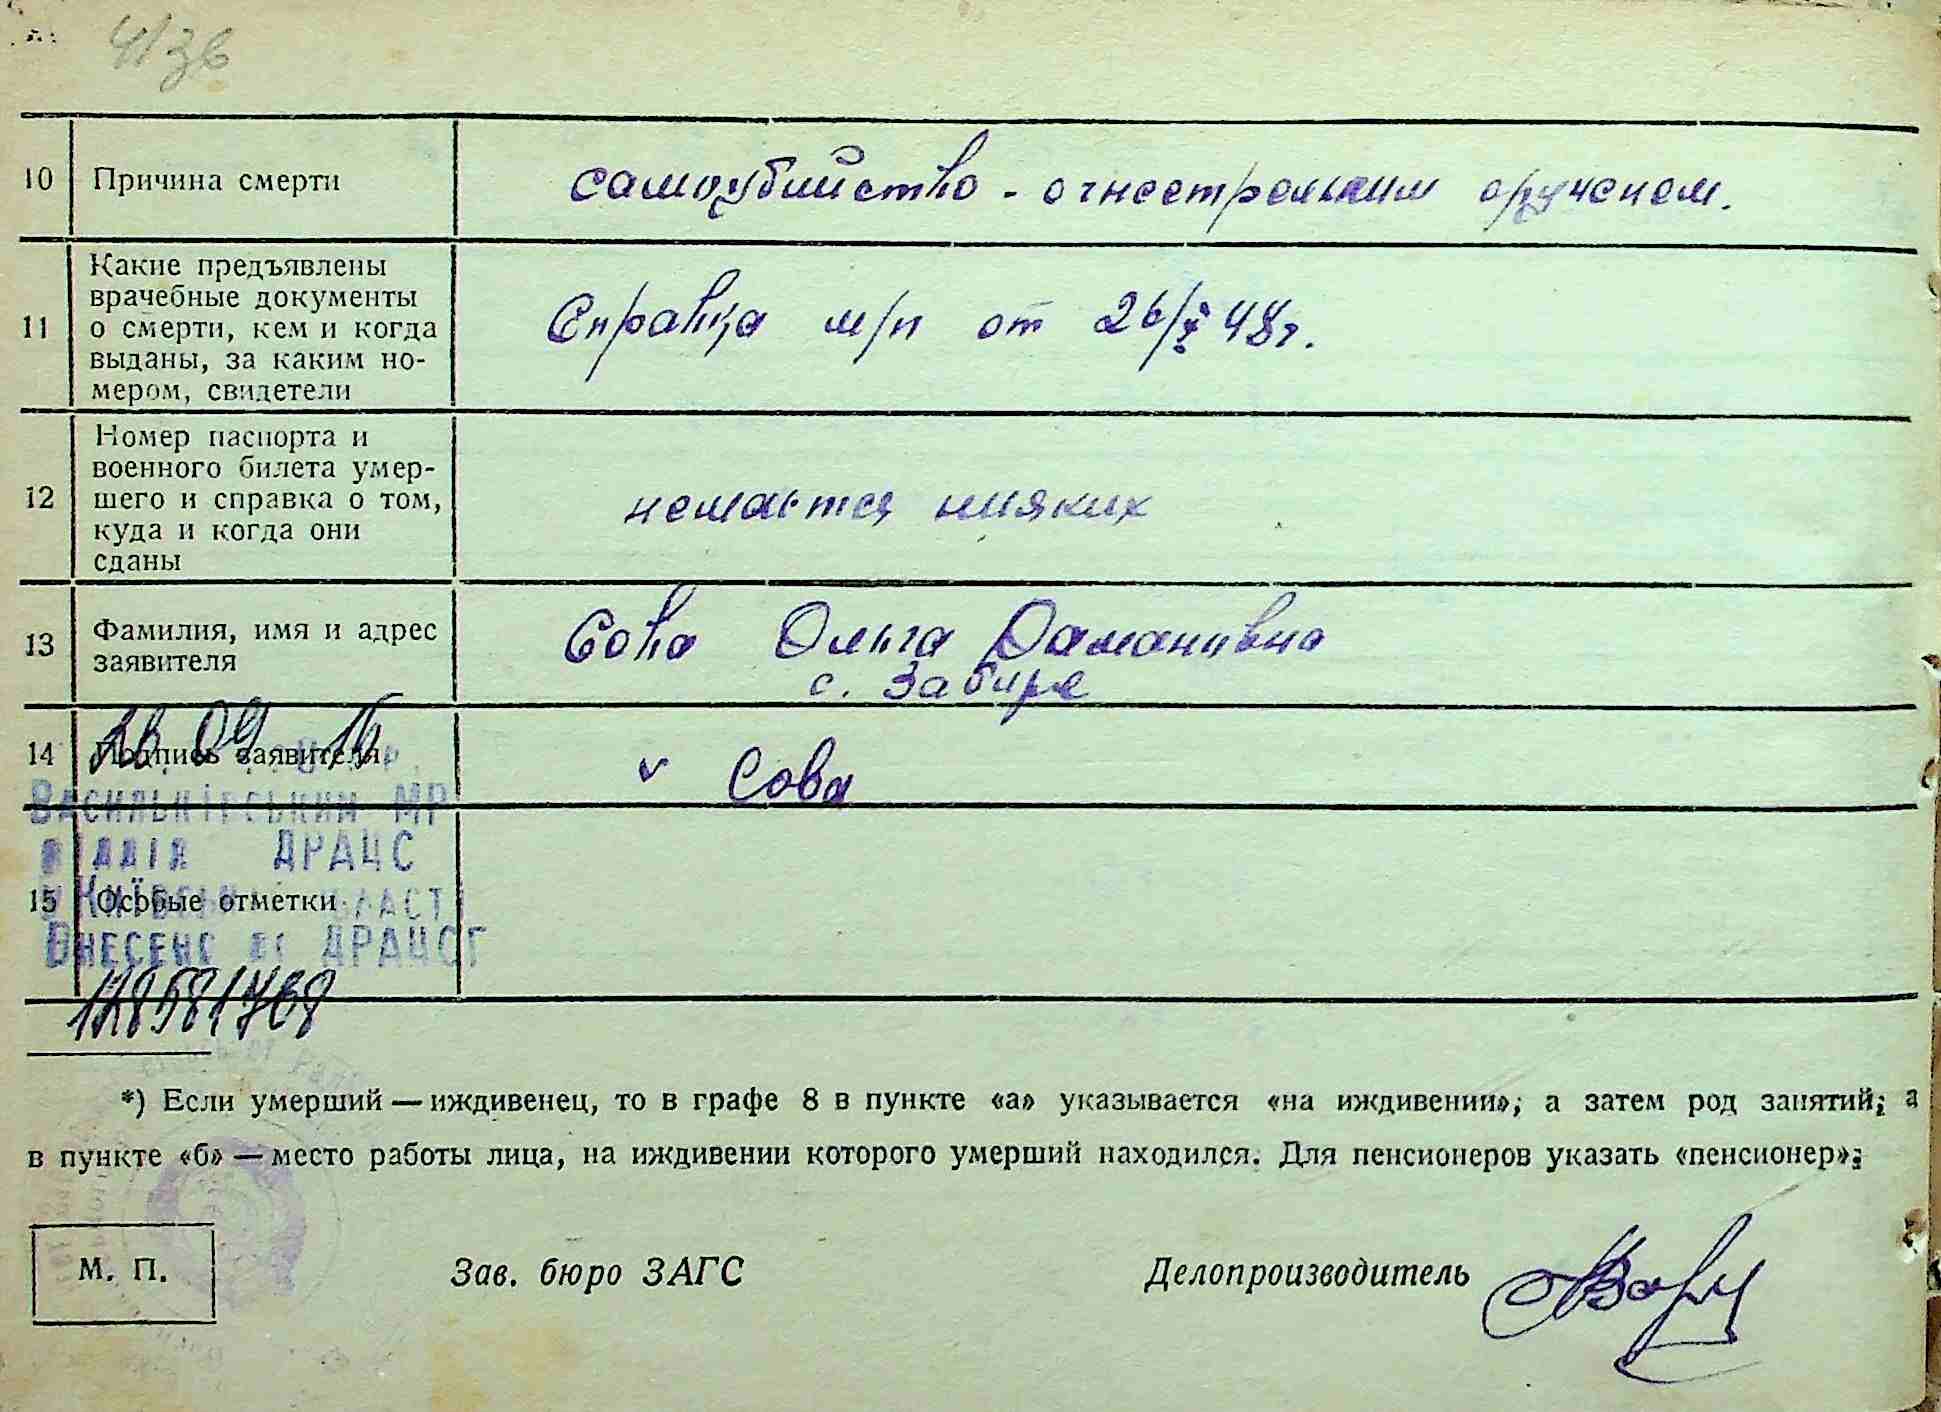 4136
10 Причина смерти самоубийство - огнестрельним оружением.
11 Какие предъявлены
врачебные документы
о смерти, кем и когда
выданы, за каким но-
мером, свидетели
Справка м/п от 26/X 48г.
12 Номер паспорта и
военного билета умер-
шего и справка о том,
куда и когда они
сданы
немается нияких
13 Фамилия, имя и адрес
заявителя
Сова Ольга
с. Забиря
26 09 16
14 Подпись заявителя v Сова
Васильківським МР
відділ ДРАЦС
15 Особые отметки
Київській області
Внесено до ДРАЦСГ
128581768
*) Если умерший — иждивенец, то в графе 8 в пункте «а» указывается «на иждивении», а затем род занятий; а
в пункте «б» — место работы лица, на иждивении которого умерший находился. Для пенсионеров указать «пенсионер»;
М. П. Зав. бюро ЗАГС Делопроизводитель